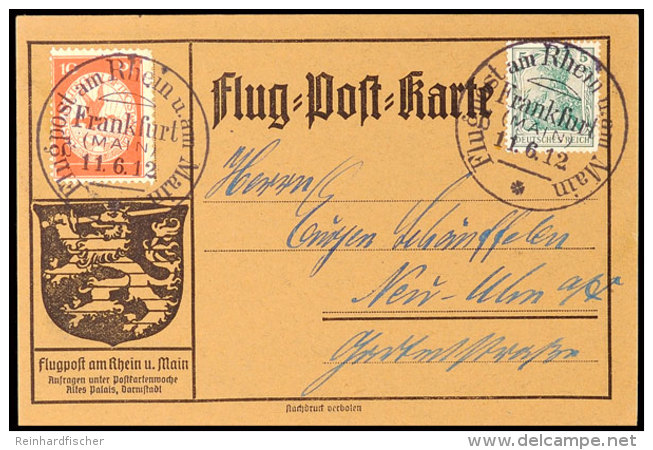 10
Flugpost am Rhein u. am Main
Frankfurt
(MAIN)
11.6.12
Flug=Post=Karte
5 5
DEUTSCHES REICH
Flugpost am Rhein u. am Main
Frankfurt
(MAIN)
11.6.12
Herrn
Schäuffelen
Neu-Ulm a/D
Gartenstraße
Flugpost am Rhein u. Main
Anfragen unter Postkartenwoche
Altes Palais, Darmstadt
Nachdruck verboten
Reinhardfischer
delcampe.net